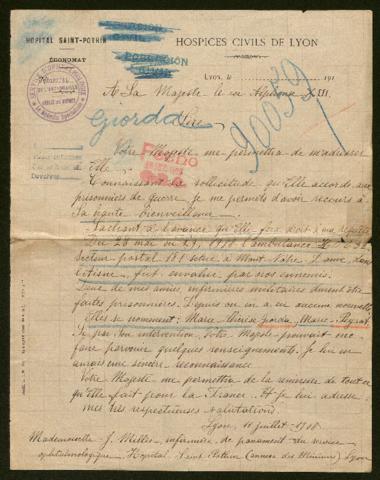 HÔPITAL SAINT-POTHIN
HOSPICES CIVILS DE LYON
ÉCONOMAT
Lyon, le 191
A Sa Majesté le roi Alphonse XIII.
Giorda
Sire,
90059
Votre Majesté me permettra de m'adresser
à Elle.
Connaissant la sollicitude qu'Elle accorde aux
prisonniers de guerre, je me permets d'avoir recours à
Sa haute bienveillance.
Sachant à l'avance qu'Elle fera droit à ma
Du 26 mai au 29, 1918 l'ambulance
Secteur postal 181 située à Mont Notre Dame, dans
l'Aisne, fut envahie par nos ennemis.
Deux de mes amies infirmières militaires durent être
faites prisonnières. Depuis on n'a eu aucune nouvelle,
Elles se nomment: Marie Thérèse Giorda, Marie Peyrat.
Si par Son intervention, Votre Majesté pouvait me
faire parvenir quelques renseignements. Je lui en
aurais une sincère reconnaissance.
Votre Majesté me permettra de la remercier de tout ce
qu'Elle fait pour la France. Et je lui adresse
mes très respectueuses salutations.
Lyon, 11 juillet 1918
Mademoiselle J. Millet, infirmière de pansement du service
ophtalmologique, Hôpital Saint Pothin (annexe des Minimes) Lyon